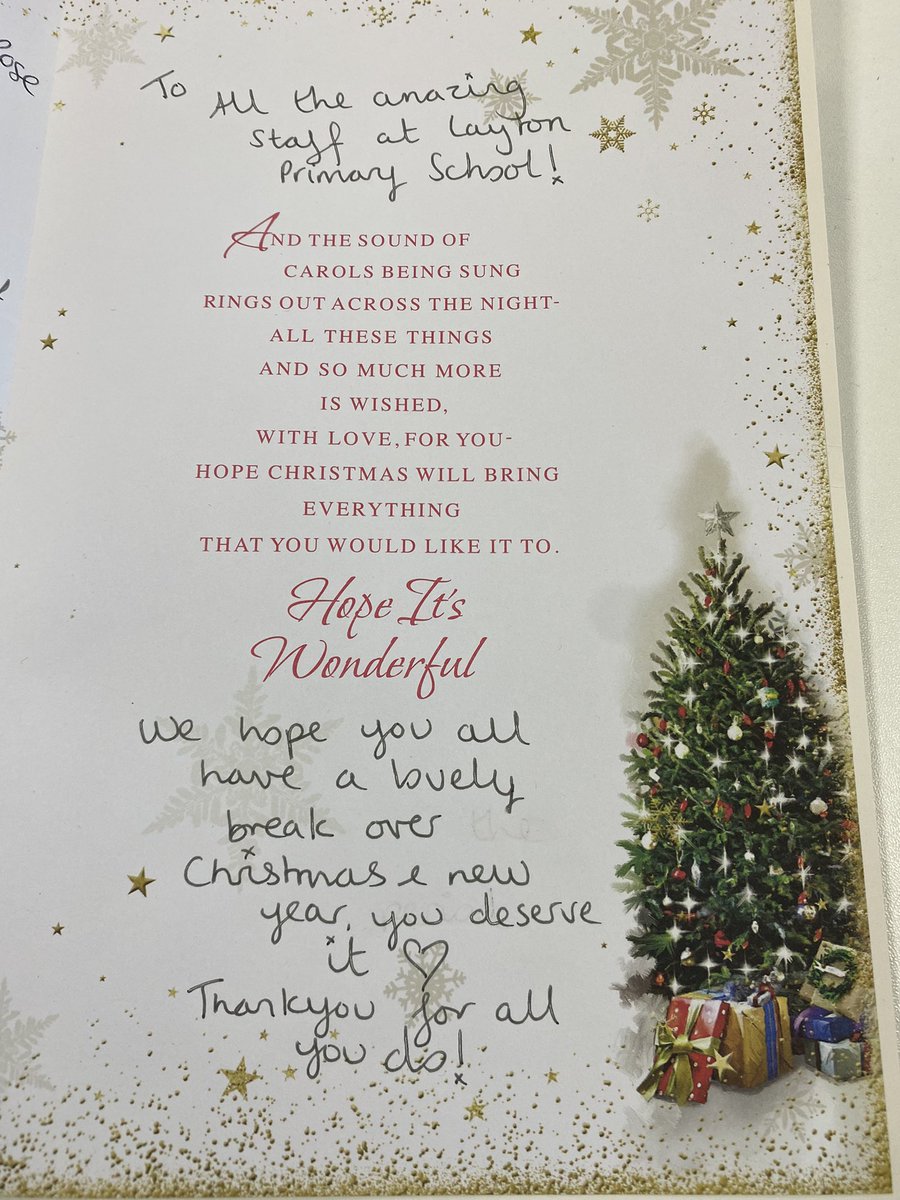 To All the amazing
staff at Layton
Primary School!
AND THE SOUND OF
CAROLS BEING SUNG
RINGS OUT ACROSS THE NIGHT-
ALL THESE THINGS
AND SO MUCH MORE
IS WISHED,
WITH LOVE, FOR YOU-
HOPE CHRISTMAS WILL BRING
EVERYTHING
THAT YOU WOULD LIKE IT TO.
Hope It's
Wonderful
We hope you all
have a lovely
break over
Christmas & new
year, you deserve
it ♡
Thankyou for all
you do!